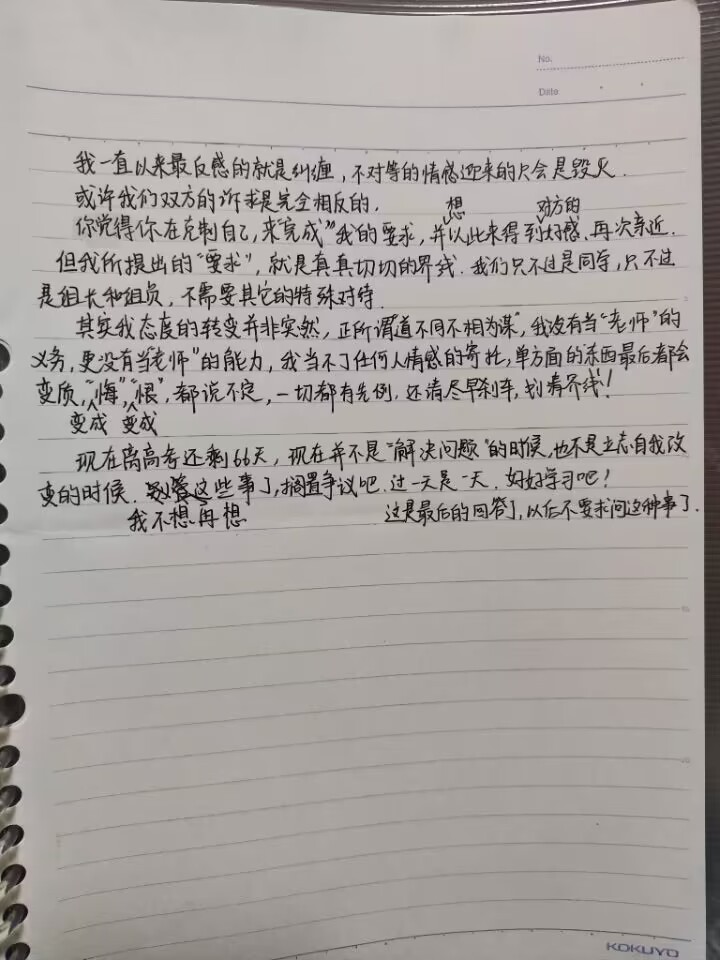 No.
Date
我一直以来最反感的就是纠缠，不对等的情感迎来的只会是毁灭．
或许我们双方的诉求是完全相反的．
想 对方的
你觉得你在克制自己，来“完成”我的要求，并以此来得到好感、再次亲近．
但我所提出的“要求”，就是真真切切的界线．我们只不过是同学，只不过
是组长和组员，不需要其它的特殊对待．
其实我态度的转变并非突然，正所谓“道不同不相为谋”，我没有当“老师”的
义务，更没有当“老师”的能力，我当不了任何人情感的寄托，单方面的东西最后都会
变质，“悔”，“恨”，都说不定，一切都有先例．还请尽早刹车，划清界线！
变成 变成
现在离高考还剩66天，现在并不是“解决问题”的时候，也不是立志自我改
变的时候．这些事了，搁置争议吧．过一天是一天．好好学习吧！
我不想再想 这是最后的回答了，以后不要求问这种事了．
KOKUYO